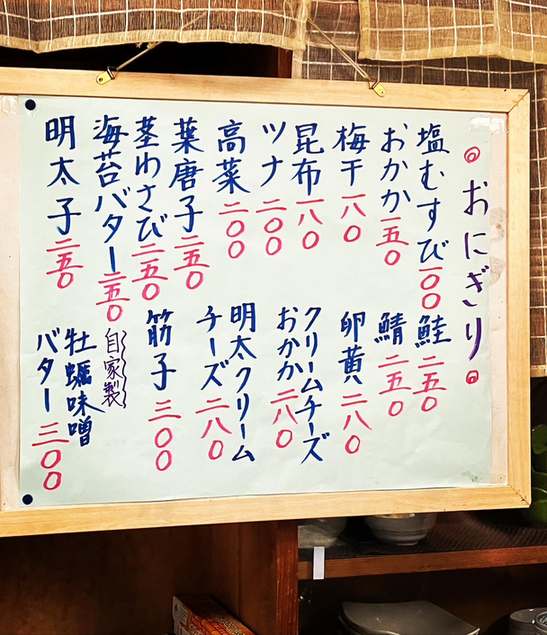 ◎おにぎり◎
塩むすび一〇〇
おかか一五〇
梅干一八〇
昆布一八〇
ツナ二〇〇
高菜二〇〇
葉唐子二五〇
茎わさび二五〇
海苔バター二五〇
明太子二五〇
鮭二五〇
鯖二五〇
卵黄二八〇
クリームチーズ
おかか二八〇
明太クリーム
チーズ二八〇
筋子三〇〇
自家製
牡蠣味噌
バター三〇〇